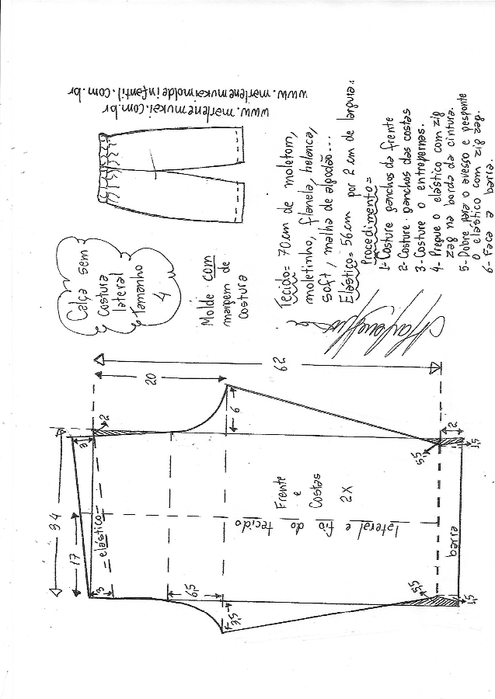 www.marlenemukai.com.br
www.marlenemukaimoldeinfantil.com.br
Calça sem
Costura
lateral
Tamanho
4
Molde com
margem de
costura
Tecido= 70cm de moletom,
moletinho, flanela, helanca,
soft, malha de algodão...
Elástico= 56cm por 2 cm de largura:
Procedimento=
1- Costure ganchos da frente
2- Costure ganchos das costas
3- Costure o entrepernas.
4- Pregue o elástico com zig
zag na borda da cintura.
5- Dobre para o avesso e pesponte
o elástico com zig zag.
6- Faça a barra.
62
20
2
3
6
2
1,5
5,5
34
17
elástico
Frente
e
Costas
2X
lateral e fio do tecido
barra
3
6,5
3,5
5,5
1,5